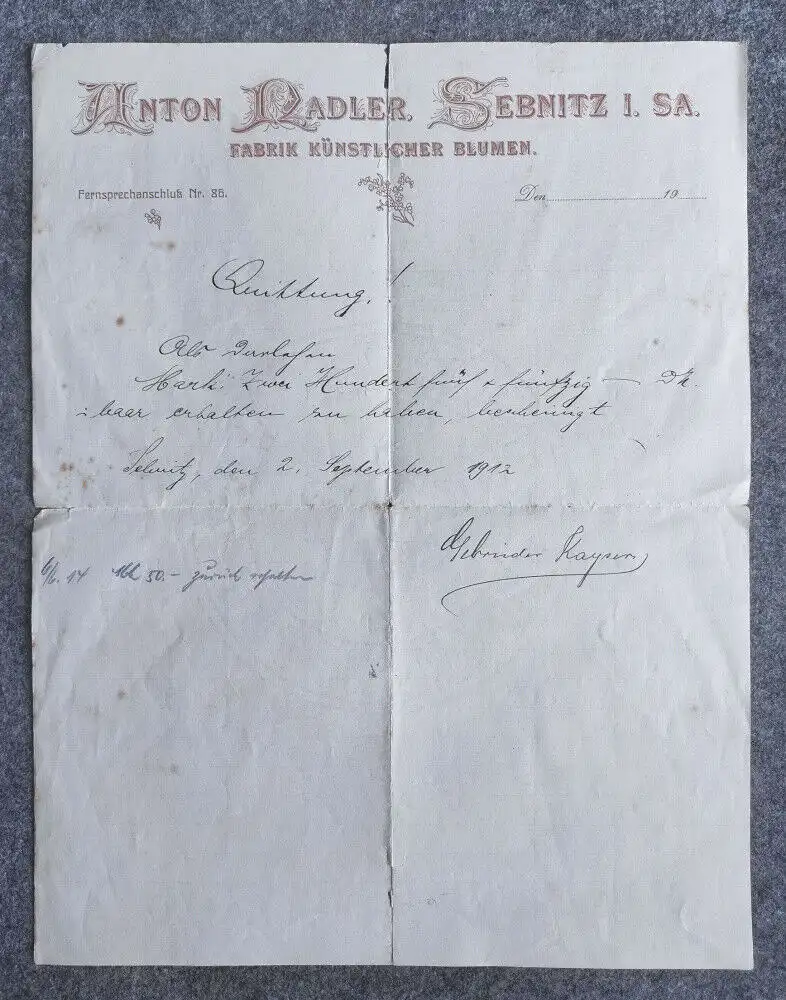 ANTON NADLER, SEBNITZ I. SA.
FABRIK KÜNSTLICHER BLUMEN.
Fernsprechanschluß Nr. 86.
Den 19
Quittung!
Als Darlehen
Mark Zwei Hundert fünf & fünfzig — Pf.
baar erhalten zu haben, bescheinigt
Sebnitz, den 2. September 1912
Gebrüder Kayser
6/6. 14 Mk 50.- zurück erhalten